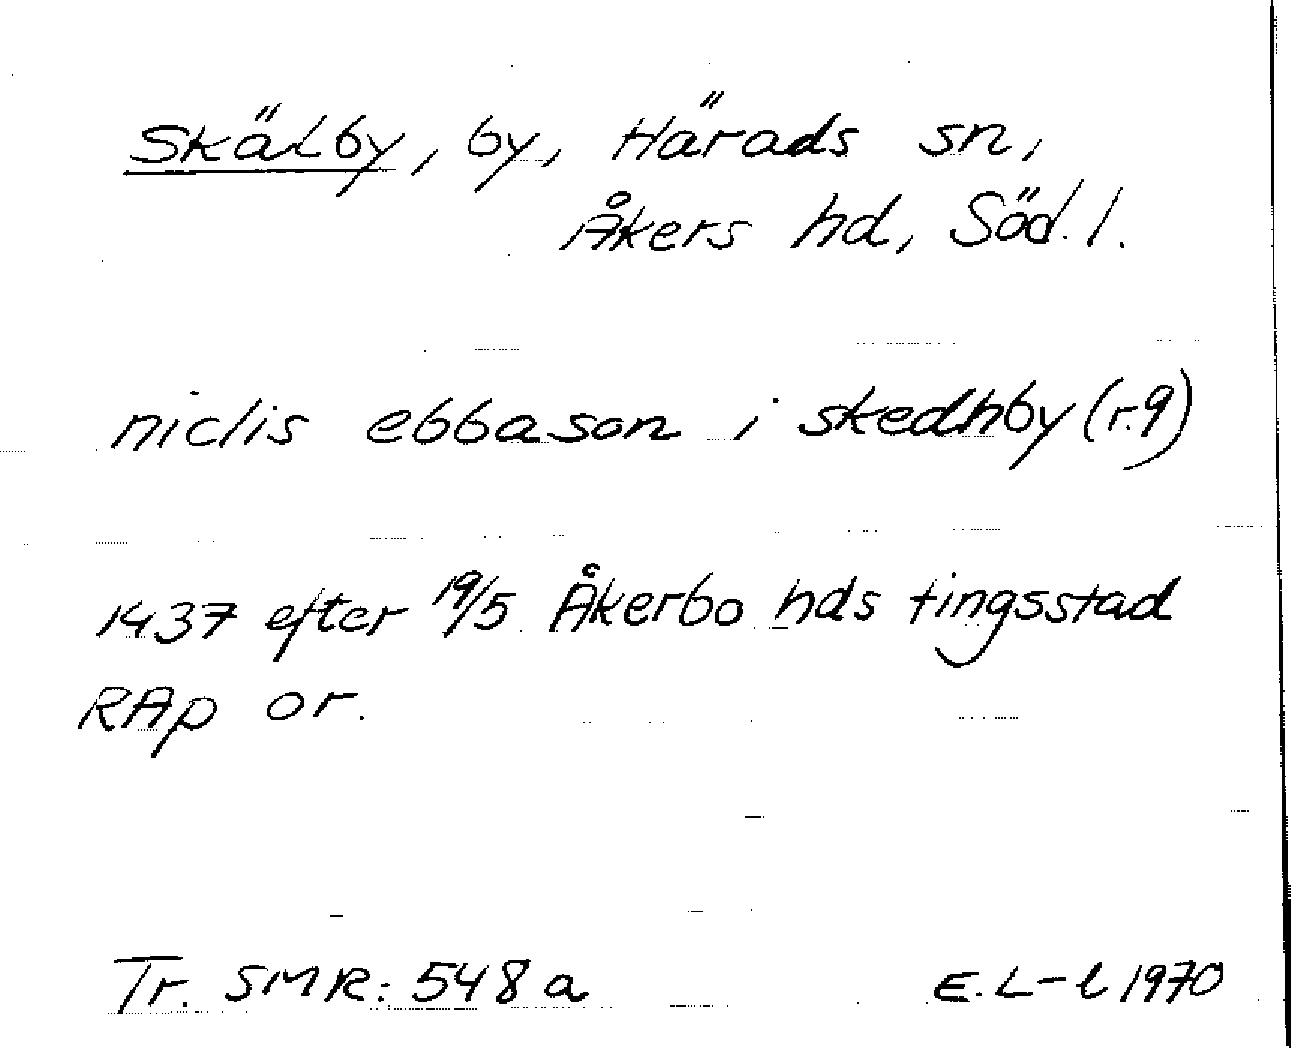 Skälby, by, Härads sn,
Åkers hd, Söd.l.
niclis ebbason i skedhby (r.9)
1437 efter 19/5 Åkerbo hds tingsstad
RAp or.
Tr. SMR: 548 a E. L-l 1970